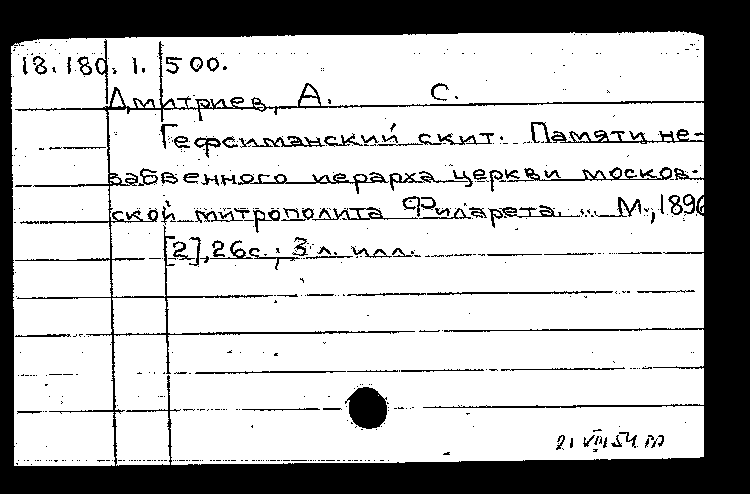 18.180.1.500.
Дмитриев, А. С.
Гефсиманский скит. Памяти не-
забвенного иерарха церкви москов-
ской митрополита Филарета. ... М., 1896
[2], 26с.; 3 л. илл.
21 VIII 54